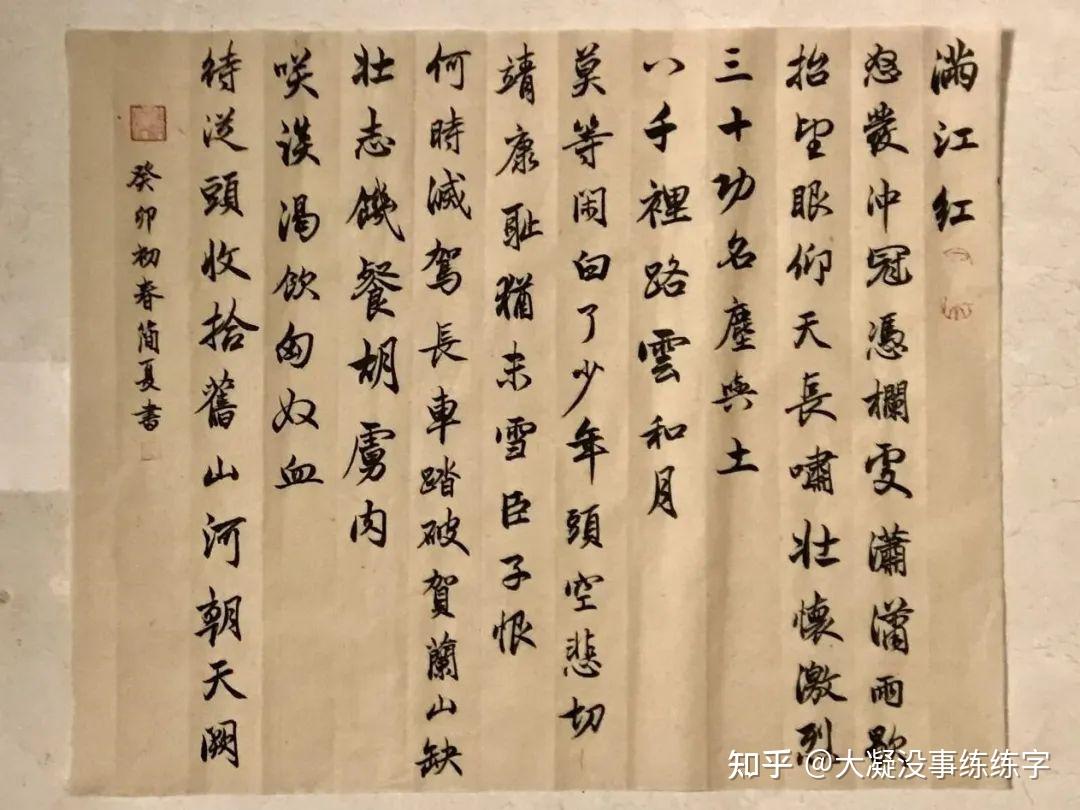 满江红
怒發沖冠憑欄處瀟瀟雨歇
抬望眼仰天長嘯壯懷激烈
三十功名塵與土
八千裡路雲和月
莫等闲白了少年頭空悲切
靖康耻猶未雪臣子恨
何時滅駕長車踏破賀蘭山缺
壯志饑餐胡虜肉
咲談渴飲匈奴血
待從頭收拾舊山河朝天闕
癸卯初春简夏書
知乎 @大凝没事练练字